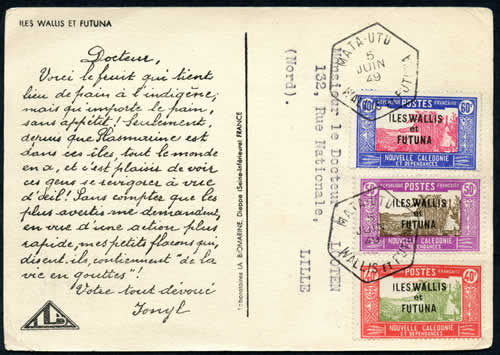 ILES WALLIS ET FUTUNA
Docteur,
Voici le fruit qui tient
lieu de pain à l'indigène;
mais qu'importe le pain,
sans appétit! Seulement,
depuis que Plasmarine est
dans ces îles, tout le monde
en a, et c'est plaisir de voir
ces gens se revigorer à vue
d'œil! Sans compter que les
plus avertis me demandent,
en vue d'une action plus
rapide, mes petits flacons qui,
disent-ils, contiennent "de la
vie en gouttes"!
Votre tout dévoué
Ionyl
Laboratoires LA BIOMARINE, Dieppe (Seine-Inférieure) FRANCE
Monsieur le Docteur LOOTEN
132, Rue Nationale,
LILLE
(Nord).
MATA-UTU
5
JUIN
29
WALLIS ET FUTUNA
60c POSTES 60c
RÉPUBLIQUE FRANÇAISE
ILES WALLIS
et
FUTUNA
NOUVELLE CALÉDONIE
ET DÉPENDANCES
50c POSTES 50c
RÉPUBLIQUE FRANÇAISE
ILES WALLIS
et
FUTUNA
NOUVELLE CALÉDONIE
ET DÉPENDANCES
MATA-UTU
29
WALLIS ET FUTUNA
40c POSTES 40c
RÉPUBLIQUE FRANÇAISE
ILES WALLIS
et
FUTUNA
NOUVELLE CALÉDONIE
ET DÉPENDANCES